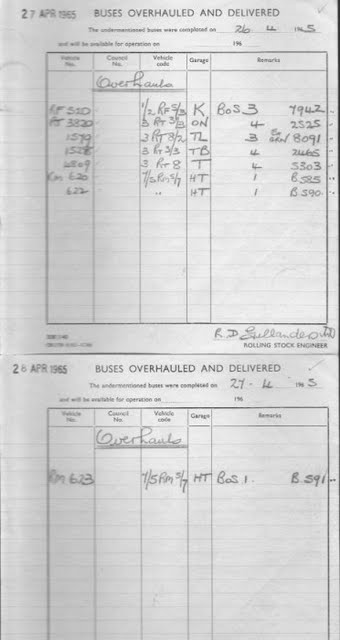 27 APR 1965 BUSES OVERHAULED AND DELIVERED
The undermentioned buses were completed on 26 4 1965
and will be available for operation on 196
Vehicle No. Council No. Vehicle code Garage Remarks
Overhauls
RF 510 1/2 RF 5/3 K BOS 3 7942
RT 3820 3 RT 3/3 ON 4 2525
1579 3 RT 8/2 TL 3 GRN 8091
1528 3 RT 3/3 TB 4 2465
4809 3 RT 8 T 4 5303
RM 620 7/5 RM 5/7 HT 1 B 585
622 " HT 1 B 590
R.D.
ROLLING STOCK ENGINEER
28 APR 1965 BUSES OVERHAULED AND DELIVERED
The undermentioned buses were completed on 27 - 4 1965
and will be available for operation on 196
Vehicle No. Council No. Vehicle code Garage Remarks
Overhauls
RM 623 7/5 RM 5/7 HT BOS 1. B.591